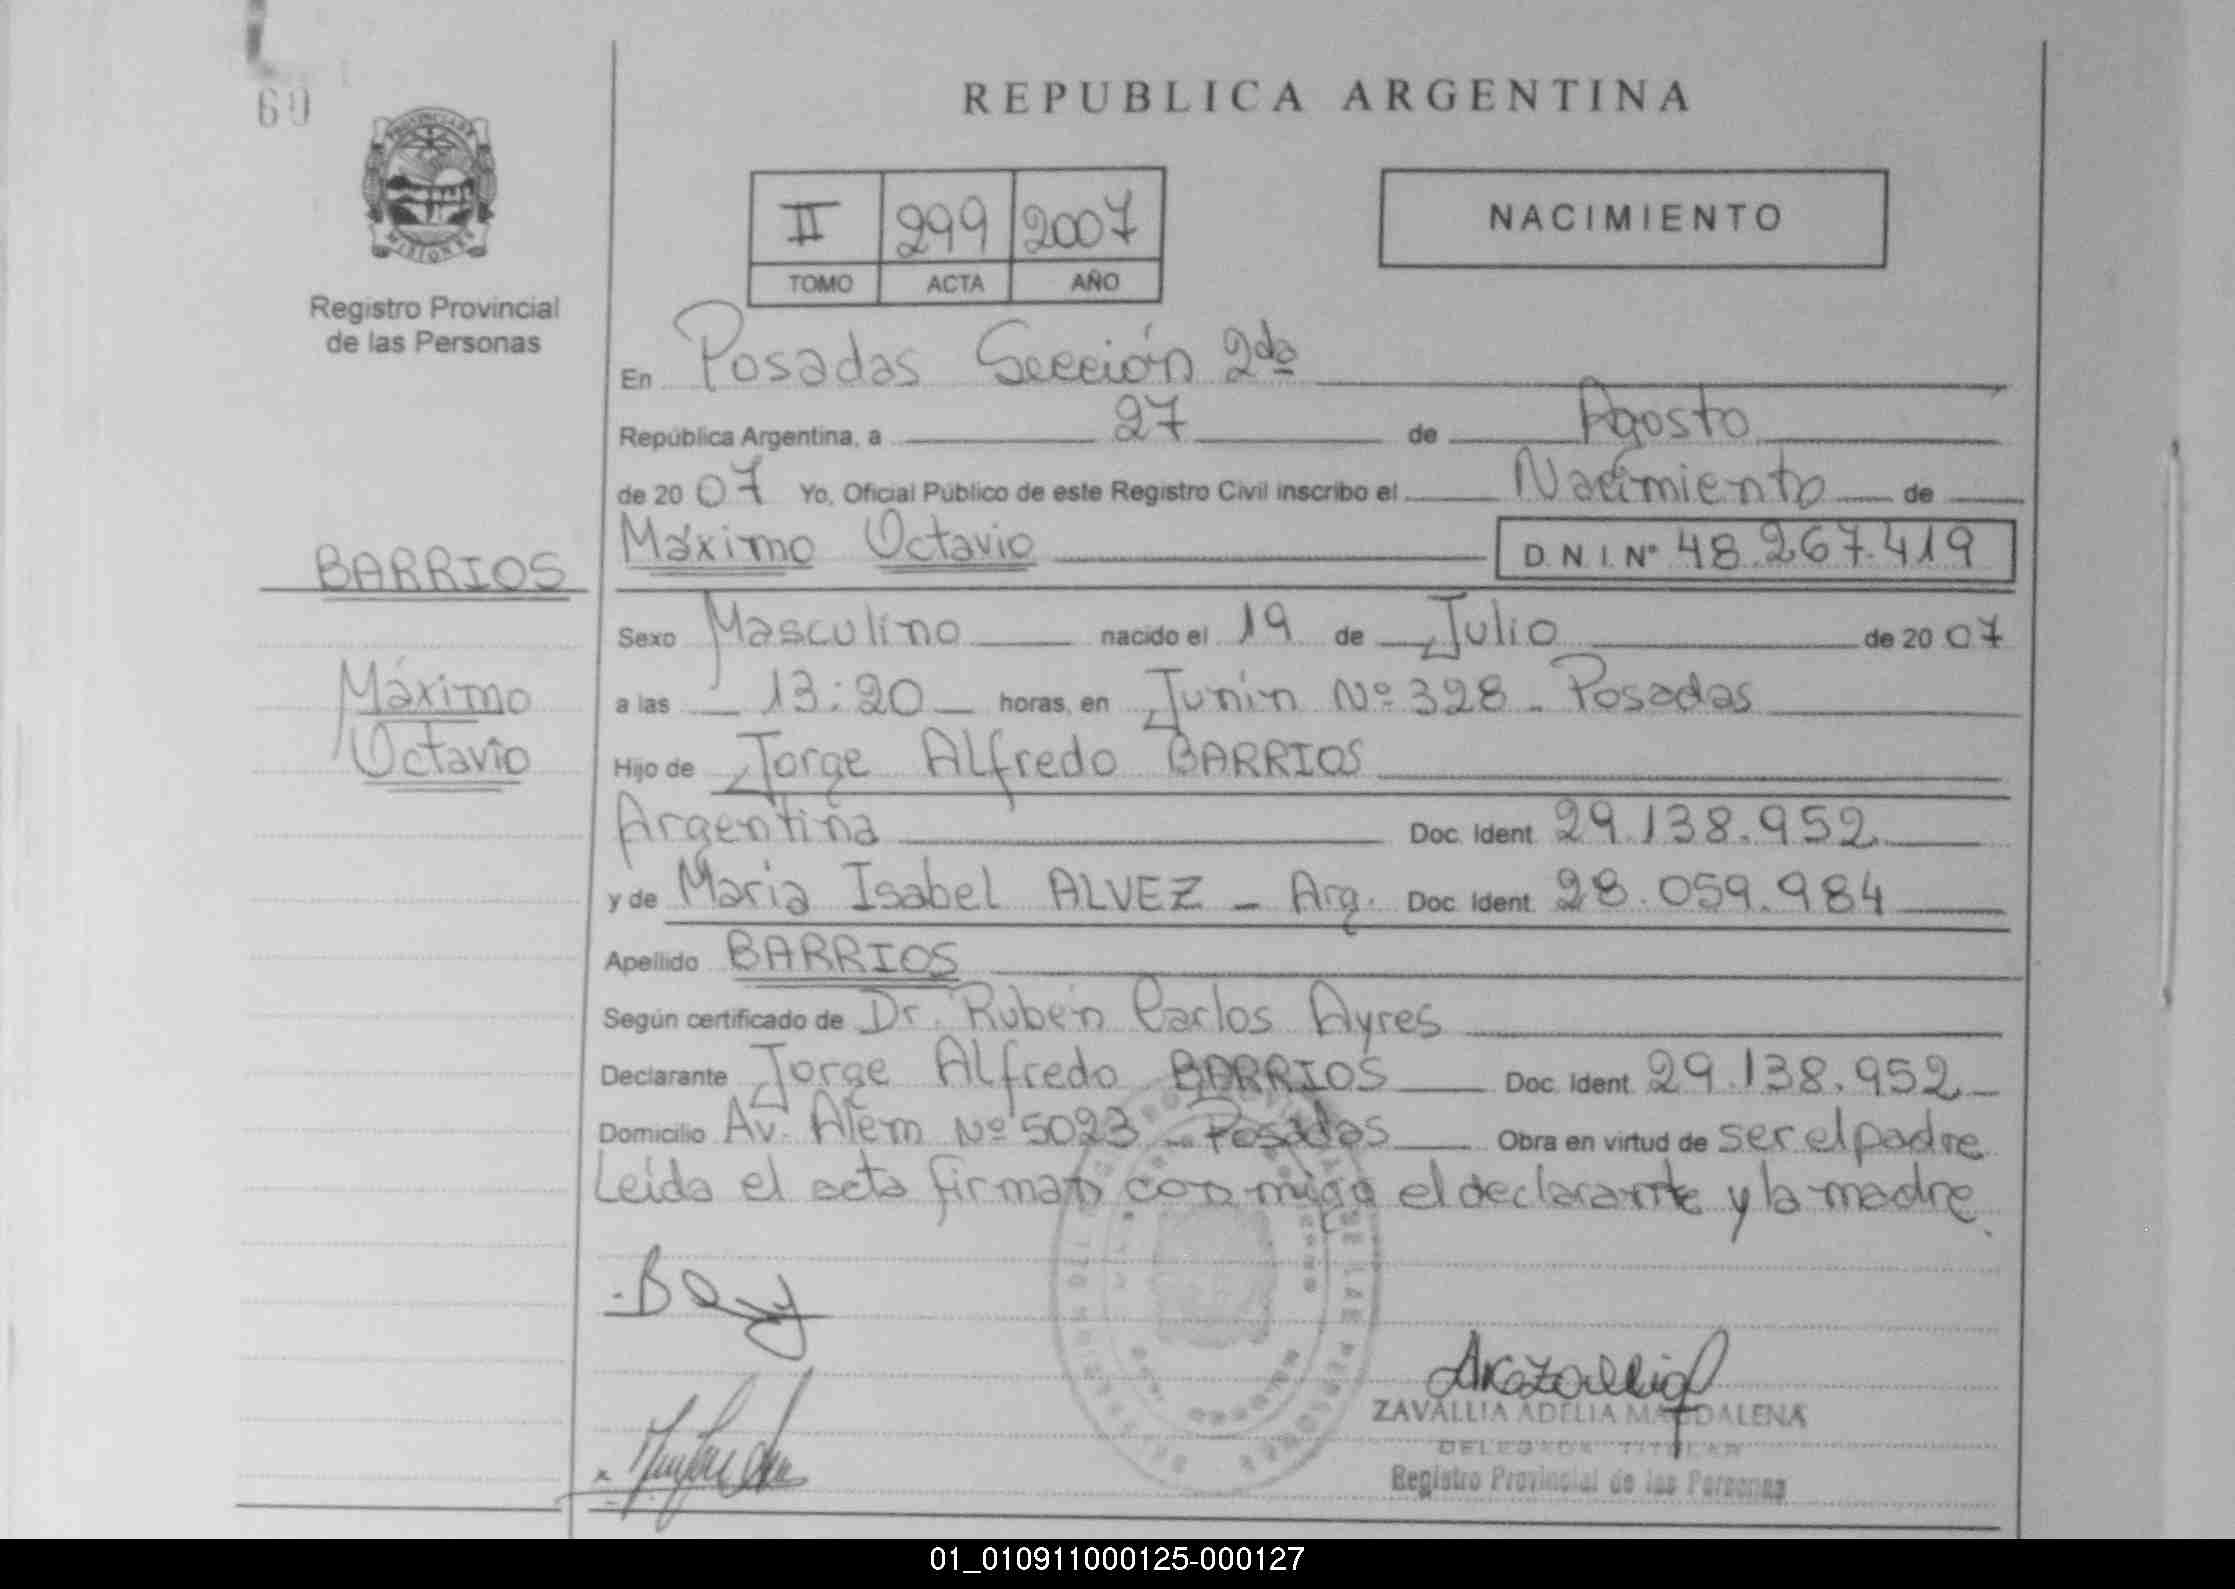 60
PROVINCIA DE
MISIONES
Registro Provincial
de las Personas
BARRIOS
Máximo
Octavio
REPUBLICA ARGENTINA
II 299 2007
TOMO ACTA AÑO
NACIMIENTO
En Posadas Sección 2da
República Argentina, a 27 de Agosto
de 2007 Yo, Oficial Público de este Registro Civil inscribo el Nacimiento de
Máximo Octavio D.N.I. Nº 48.267.419
Sexo Masculino nacido el 19 de Julio de 2007
a las 13:20 horas, en Junín Nº 328 - Posadas
Hijo de Jorge Alfredo BARRIOS
Argentina Doc. Ident. 29.138.952
y de Maria Isabel ALVEZ - Arg. Doc. Ident. 28.059.984
Apellido BARRIOS
Según certificado de Dr. Rubén Carlos Ayres
Declarante Jorge Alfredo BARRIOS Doc. Ident. 29.138.952
Domicilio Av. Alem Nº 5023 - Posadas Obra en virtud de ser el padre
Leída el acta firman conmigo el declarante y la madre.
ZAVALLIA ADELIA MAGDALENA
DELEGADA TITULAR
Registro Provincial de las Personas
01_010911000125-000127